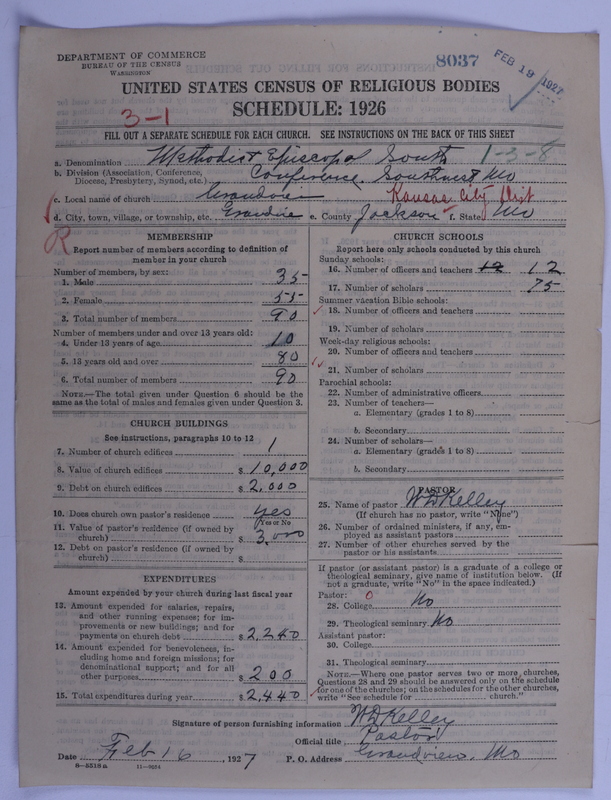 DEPARTMENT OF COMMERCE
BUREAU OF THE CENSUS
WASHINGTON
8037
FEB 19 1927
UNITED STATES CENSUS OF RELIGIOUS BODIES
SCHEDULE: 1926
3-1
FILL OUT A SEPARATE SCHEDULE FOR EACH CHURCH. SEE INSTRUCTIONS ON THE BACK OF THIS SHEET
a. Denomination Methodist Episcopal South 1-3-8
b. Division (Association, Conference, Diocese, Presbytery, Synod, etc.) Conference. Southwest Mo
c. Local name of church Grandview Kansas City Dist
d. City, town, village, or township, etc. Grandview e. County Jackson f. State Mo
R
MEMBERSHIP
Report number of members according to definition of
member in your church
Number of members, by sex:
1. Male 35
2. Female 55
3. Total number of members 90
Number of members under and over 13 years old:
4. Under 13 years of age 10
5. 13 years old and over 80
6. Total number of members 90
NOTE.—The total given under Question 6 should be
same as the total of males and females given under Question 3.
CHURCH BUILDINGS
See instructions, paragraphs 10 to 12
7. Number of church edifices 1
8. Value of church edifices $ 10,000
9. Debt on church edifices $ 2,000
10. Does church own pastor's residence? yes
(Yes or No)
11. Value of pastor's residence (if owned by
church) $ 3,000
12. Debt on pastor's residence (if owned by
church) $
EXPENDITURES
Amount expended by your church during last fiscal year
13. Amount expended for salaries, repairs,
and other running expenses; for im-
provements or new buildings; and for
payments on church debt $ 2,240
14. Amount expended for benevolences, in-
cluding home and foreign missions; for
denominational support; and for all
other purposes $ 200
15. Total expenditures during year $ 2,440
CHURCH SCHOOLS
Report here only schools conducted by this church
Sunday schools:
16. Number of officers and teachers 12 12
17. Number of scholars 75
Summer vacation Bible schools:
18. Number of officers and teachers
19. Number of scholars
Week-day religious schools:
20. Number of officers and teachers
21. Number of scholars
Parochial schools:
22. Number of administrative officers
23. Number of teachers—
a. Elementary (grades 1 to 8)
b. Secondary
24. Number of scholars—
a. Elementary (grades 1 to 8)
b. Secondary
PASTOR
25. Name of pastor W D Kelley
(If church has no pastor, write "None")
26. Number of ordained ministers, if any, em-
ployed as assistant pastors
27. Number of other churches served by the
pastor or his assistants
If pastor (or assistant pastor) is a graduate of a college or
theological seminary, give name of institution below. (If
not a graduate, write "No" in the space indicated.)
Pastor: 0
28. College No
29. Theological seminary No
Assistant pastor:
30. College
31. Theological seminary
NOTE.—Where one pastor serves two or more churches,
Questions 28 and 29 should be answered only on the schedule
for one of the churches; on the schedules for the other churches,
write "See schedule for church."
Signature of person furnishing information W D Kelley
Official title Pastor
Date Feb 16, 1927 P. O. Address Grandview, Mo
8—5518a 11—9024